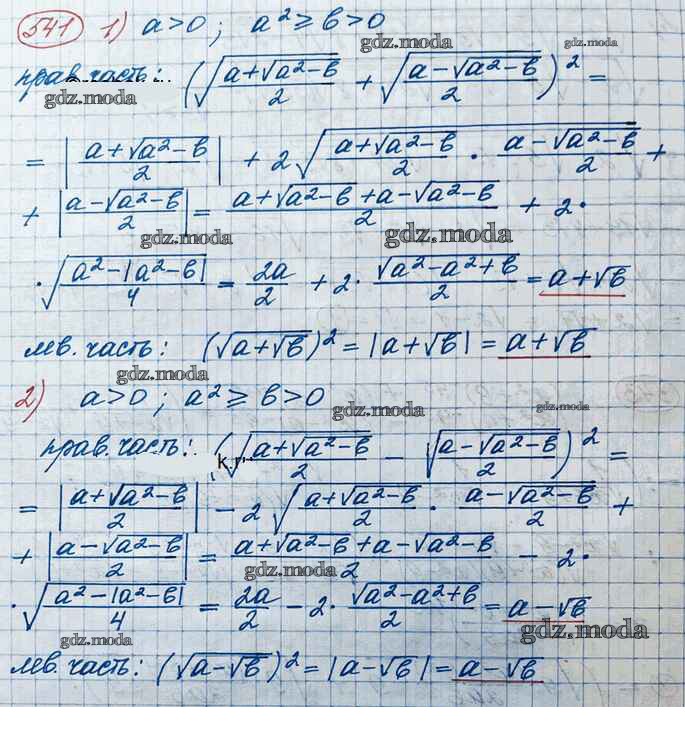 541 1) a>0 ; a² ≥ b>0
gdz.moda gdz.moda
прав. часть: (√((a+√(a²-b))/2) + √((a-√(a²-b))/2))² =
gdz.moda
= |(a+√(a²-b))/2| + 2√((a+√(a²-b))/2 · (a-√(a²-b))/2) +
+ |(a-√(a²-b))/2| = (a+√(a²-b)+a-√(a²-b))/2 + 2·
gdz.moda gdz.moda
·√((a²-|a²-b|)/4) = 2a/2 + 2·√(a²-a²+b)/2 = a+√b
лев. часть: (√(a+√b))² = |a+√b| = a+√b
gdz.moda
2) a>0 ; a² ≥ b>0
gdz.moda gdz.moda
прав. часть: (√((a+√(a²-b))/2) - √((a-√(a²-b))/2))² =
= |(a+√(a²-b))/2| - 2√((a+√(a²-b))/2 · (a-√(a²-b))/2) +
+ |(a-√(a²-b))/2| = (a+√(a²-b)+a-√(a²-b))/2 - 2·
gdz.moda
·√((a²-|a²-b|)/4) = 2a/2 - 2·√(a²-a²+b)/2 = a-√b
gdz.moda gdz.moda
лев. часть: (√(a-√b))² = |a-√b| = a-√b